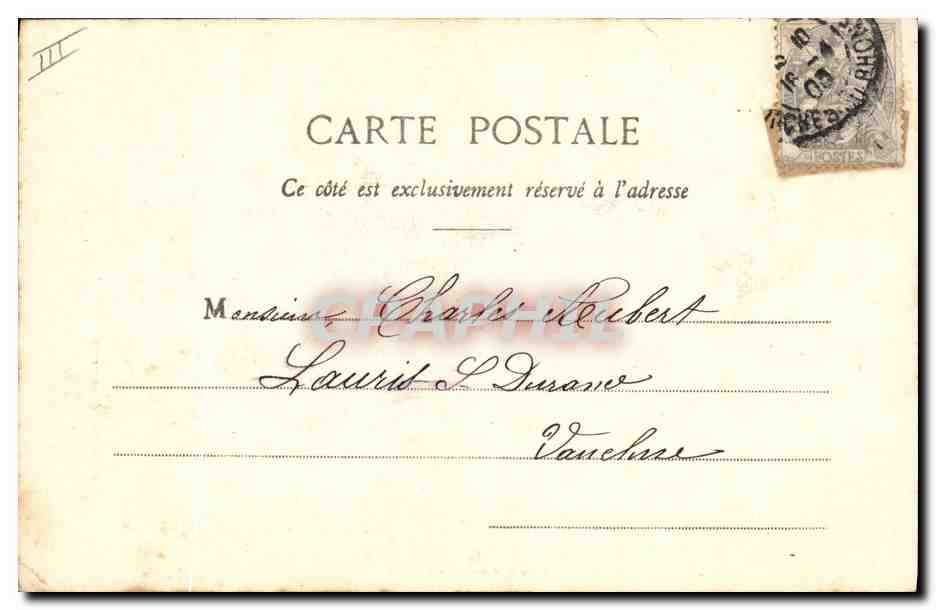 III
CARTE POSTALE
Ce côté est exclusivement réservé à l'adresse
Monsieur Charles Aubert
Lauris S Durance
Vaucluse
POSTES
CHES DU RHONE
CPAPHIL